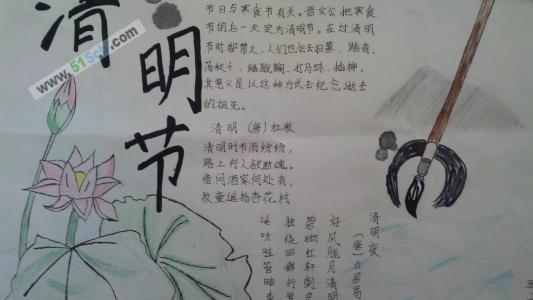 清明节
www.51Sole.com
节日与寒食节有关。晋文公把寒食
节的后一天定为清明节。在过清明
节时都禁火，人们也会去扫墓、踏青、
荡秋千、踏蹴鞠、打马球、插柳。
其意义是以这种方式去纪念逝去
的祖先。
清明（唐）杜牧
清明时节雨纷纷，
路上行人欲断魂。
借问酒家何处有，
牧童遥指杏花村
清明夜
（唐）白居易
好风胧月清明
碧砌红轩刺史
独绕回廊行
遥听弦管暗